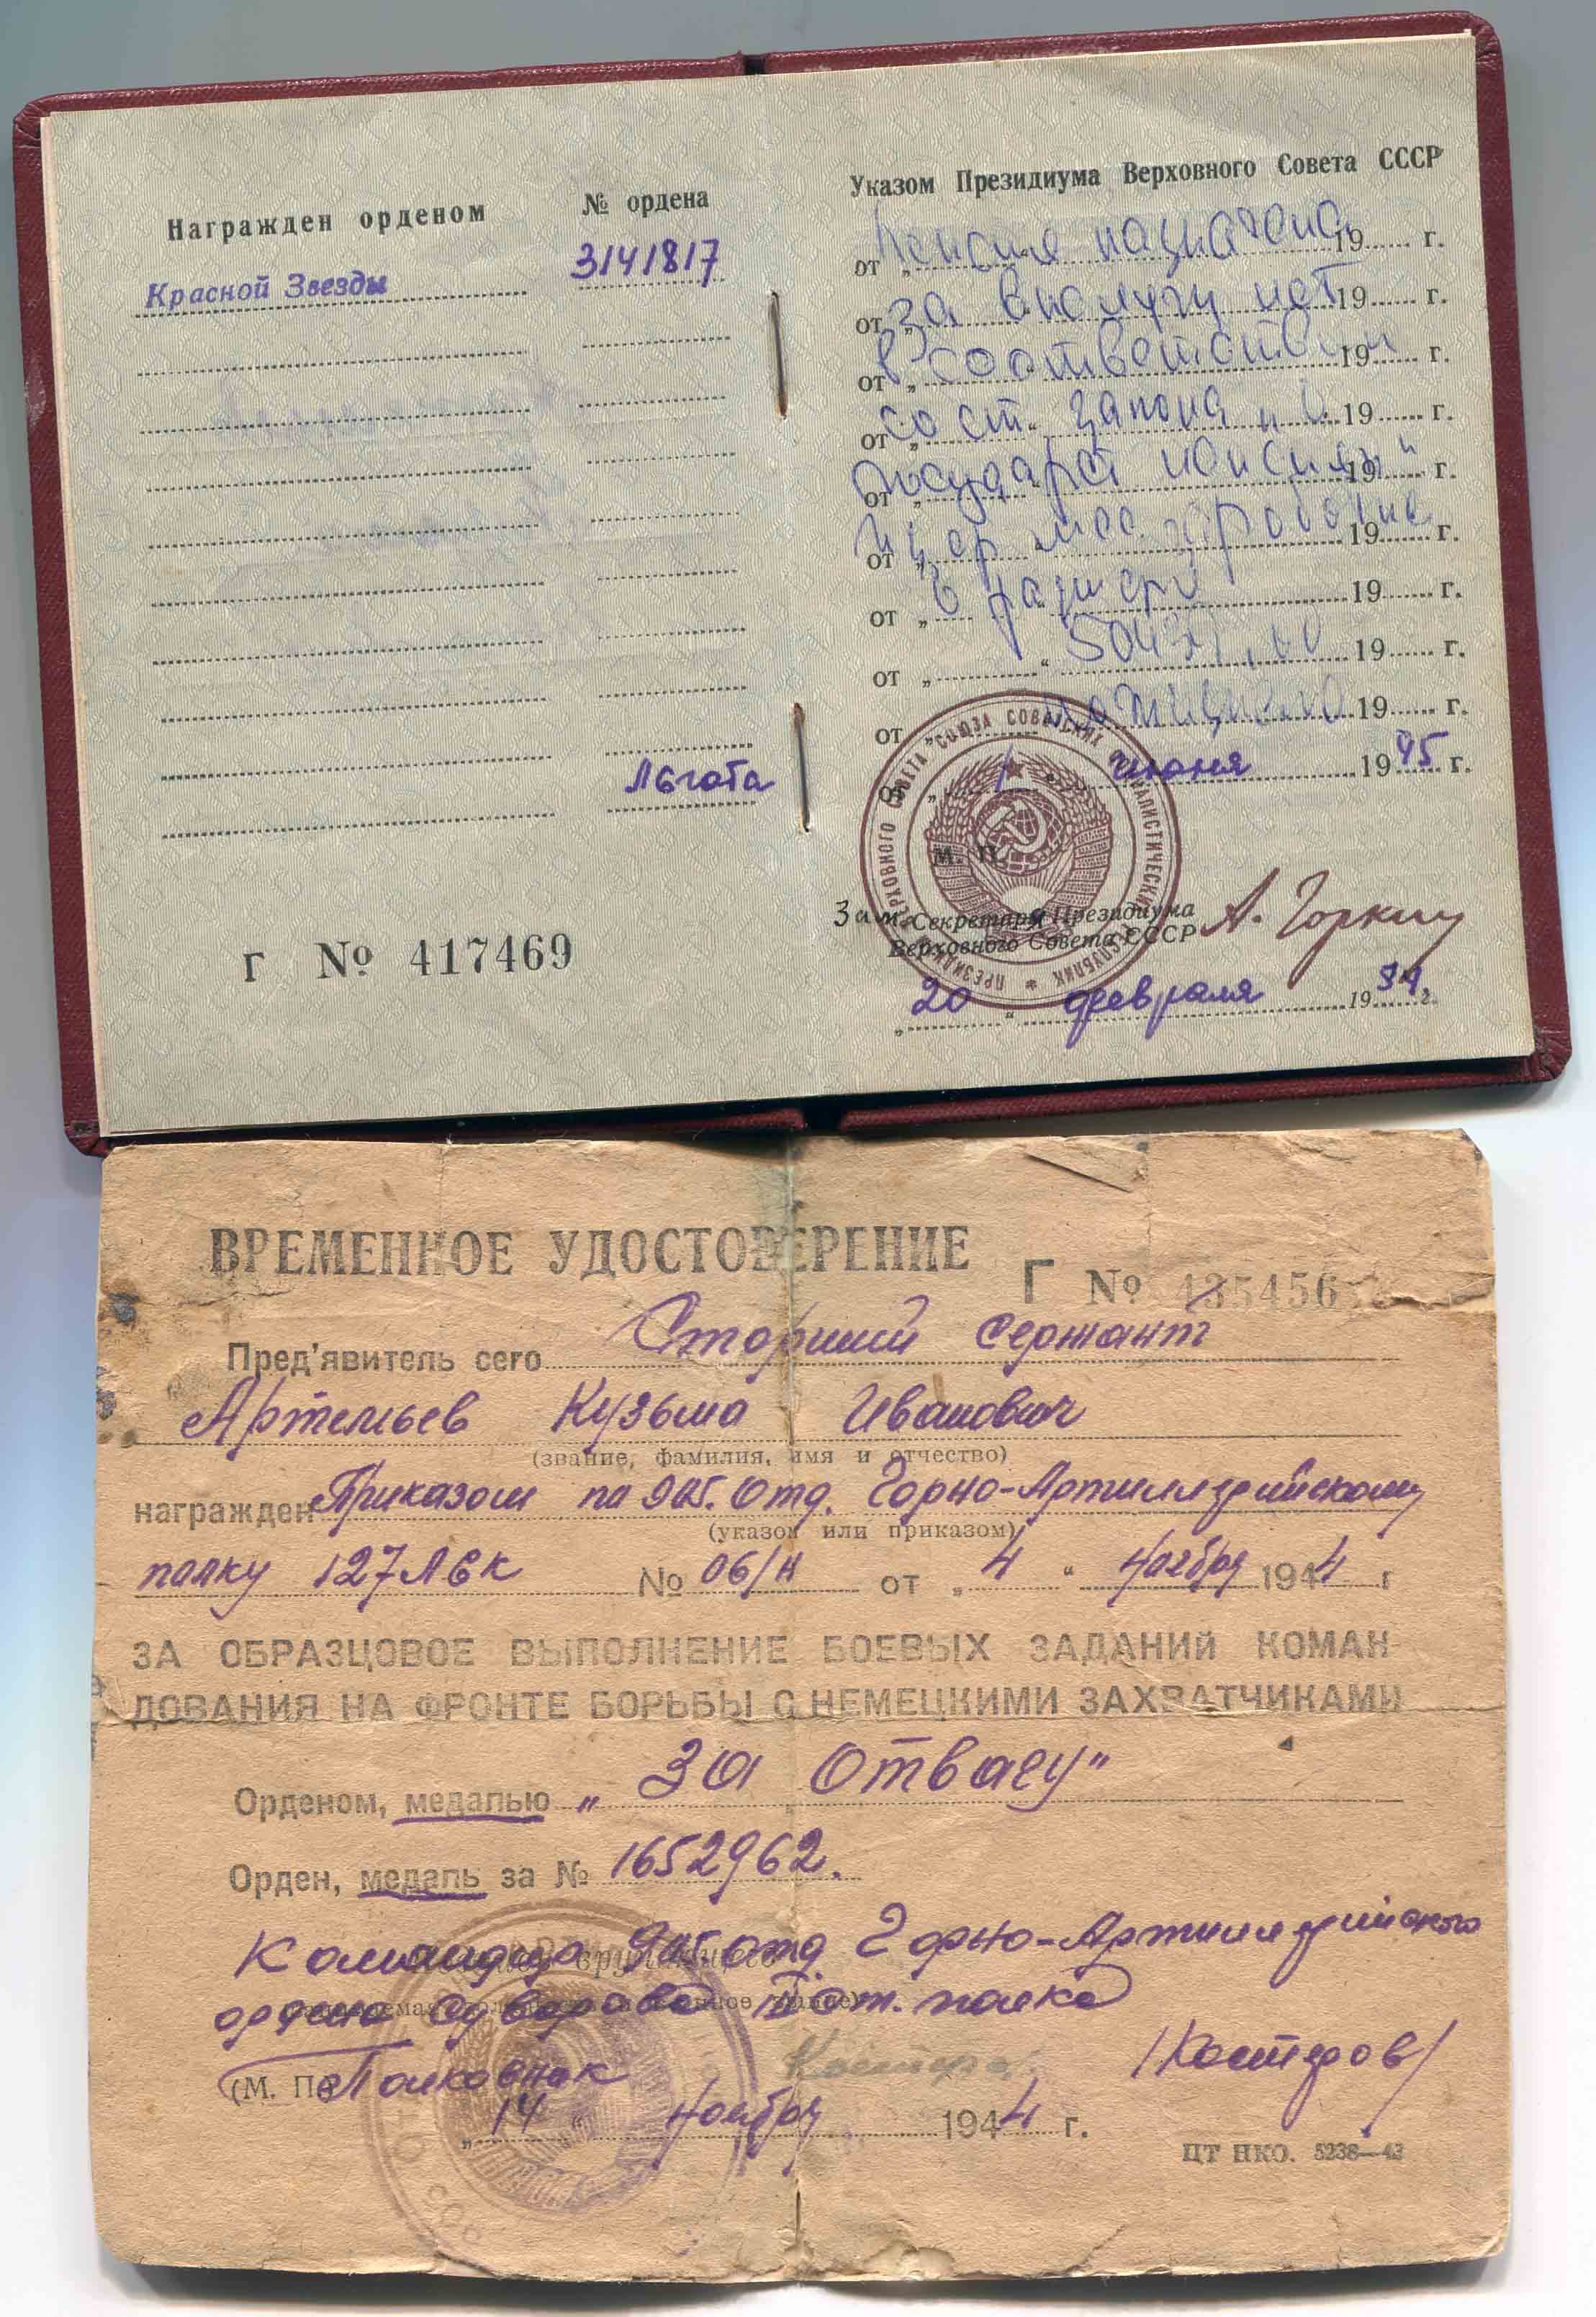 Награжден орденом
№ ордена
Красной Звезды
3141817
Льгота
Г № 417469
Указом Президиума Верховного Совета СССР
от „ Пенсия назначена 19 г.
от „ за выслугу лет 19 г.
от „ в соответствии 19 г.
от „ со ст. закона „О 19 г.
от „ 19 г.
от „ 19 г.
от „ в размере 19 г.
от „ “ 19 г.
от „ пожизненно 19 г.
от „ 1 “ июня 1945 г.
М. П.
Зам. Секретаря Президиума
Верховного Совета СССР
А. Горкин
„ 20 “ февраля 19 г.
ВРЕМЕННОЕ УДОСТОВЕРЕНИЕ
Г № 435456
Пред'явитель сего Старший сержант
Артемьев Кузьма Иванович
(звание, фамилия, имя и отчество)
награжден Приказом по 905. Отд. Горно-Артиллерийскому
(указом или приказом)
полку 127 ЛСК № 06/Н от „ 4 “ Ноября 1944 г
ЗА ОБРАЗЦОВОЕ ВЫПОЛНЕНИЕ БОЕВЫХ ЗАДАНИЙ КОМАН
ДОВАНИЯ НА ФРОНТЕ БОРЬБЫ С НЕМЕЦКИМИ ЗАХВАТЧИКАМИ
Орденом, медалью „За Отвагу“
Орден, медаль за № 1652962.
Командир 905. отд Горно-Артиллерийского
ордена Суворова III Ст. полка
(М. П.) Полковник /Костеров/
„ 14 “ Ноября 1944 г.
ЦТ НКО. 5238—43